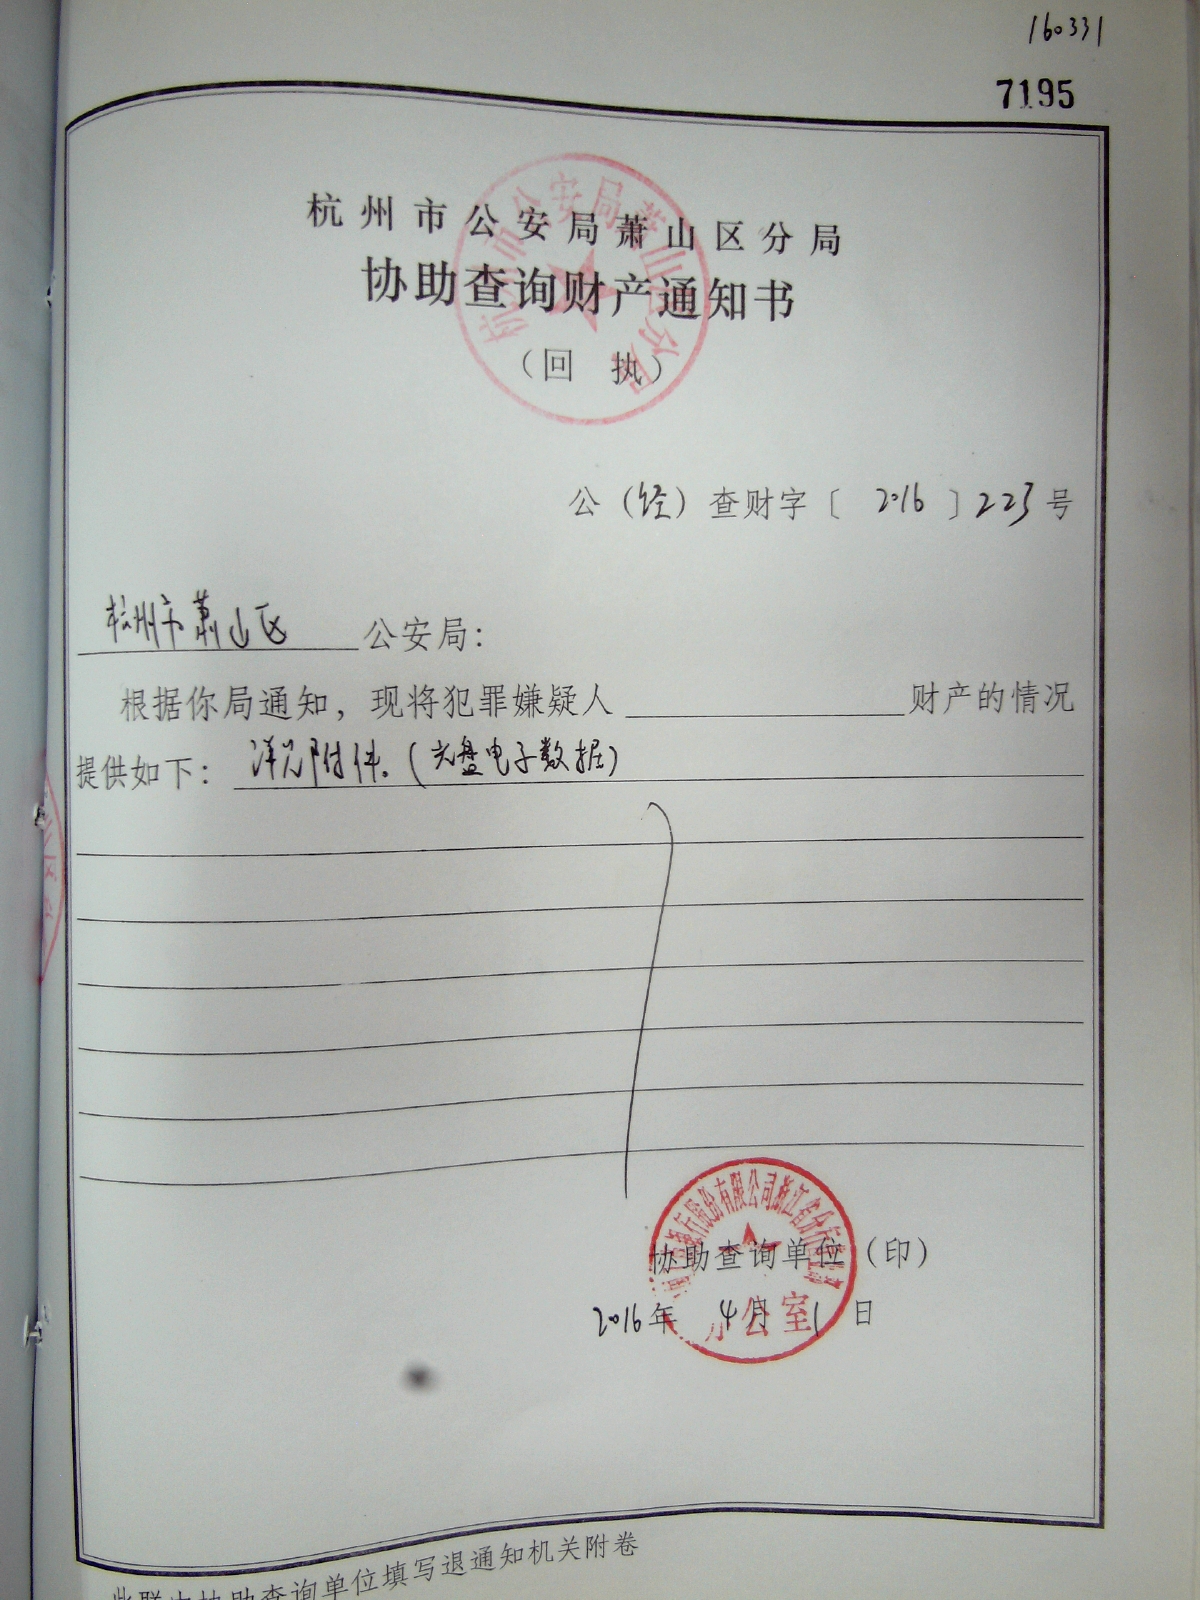 160331
7195
杭州市公安局萧山区分局
协助查询财产通知书
（回 执）
公（经）查财字〔 2016 〕223号
杭州市萧山区 公安局：
根据你局通知，现将犯罪嫌疑人 财产的情况
提供如下： 详见附件。（光盘电子数据）
股份有限公司浙江省分行
协助查询单位（印）
2016年 4月 1日
办公室
此联由协助查询单位填写退通知机关附卷